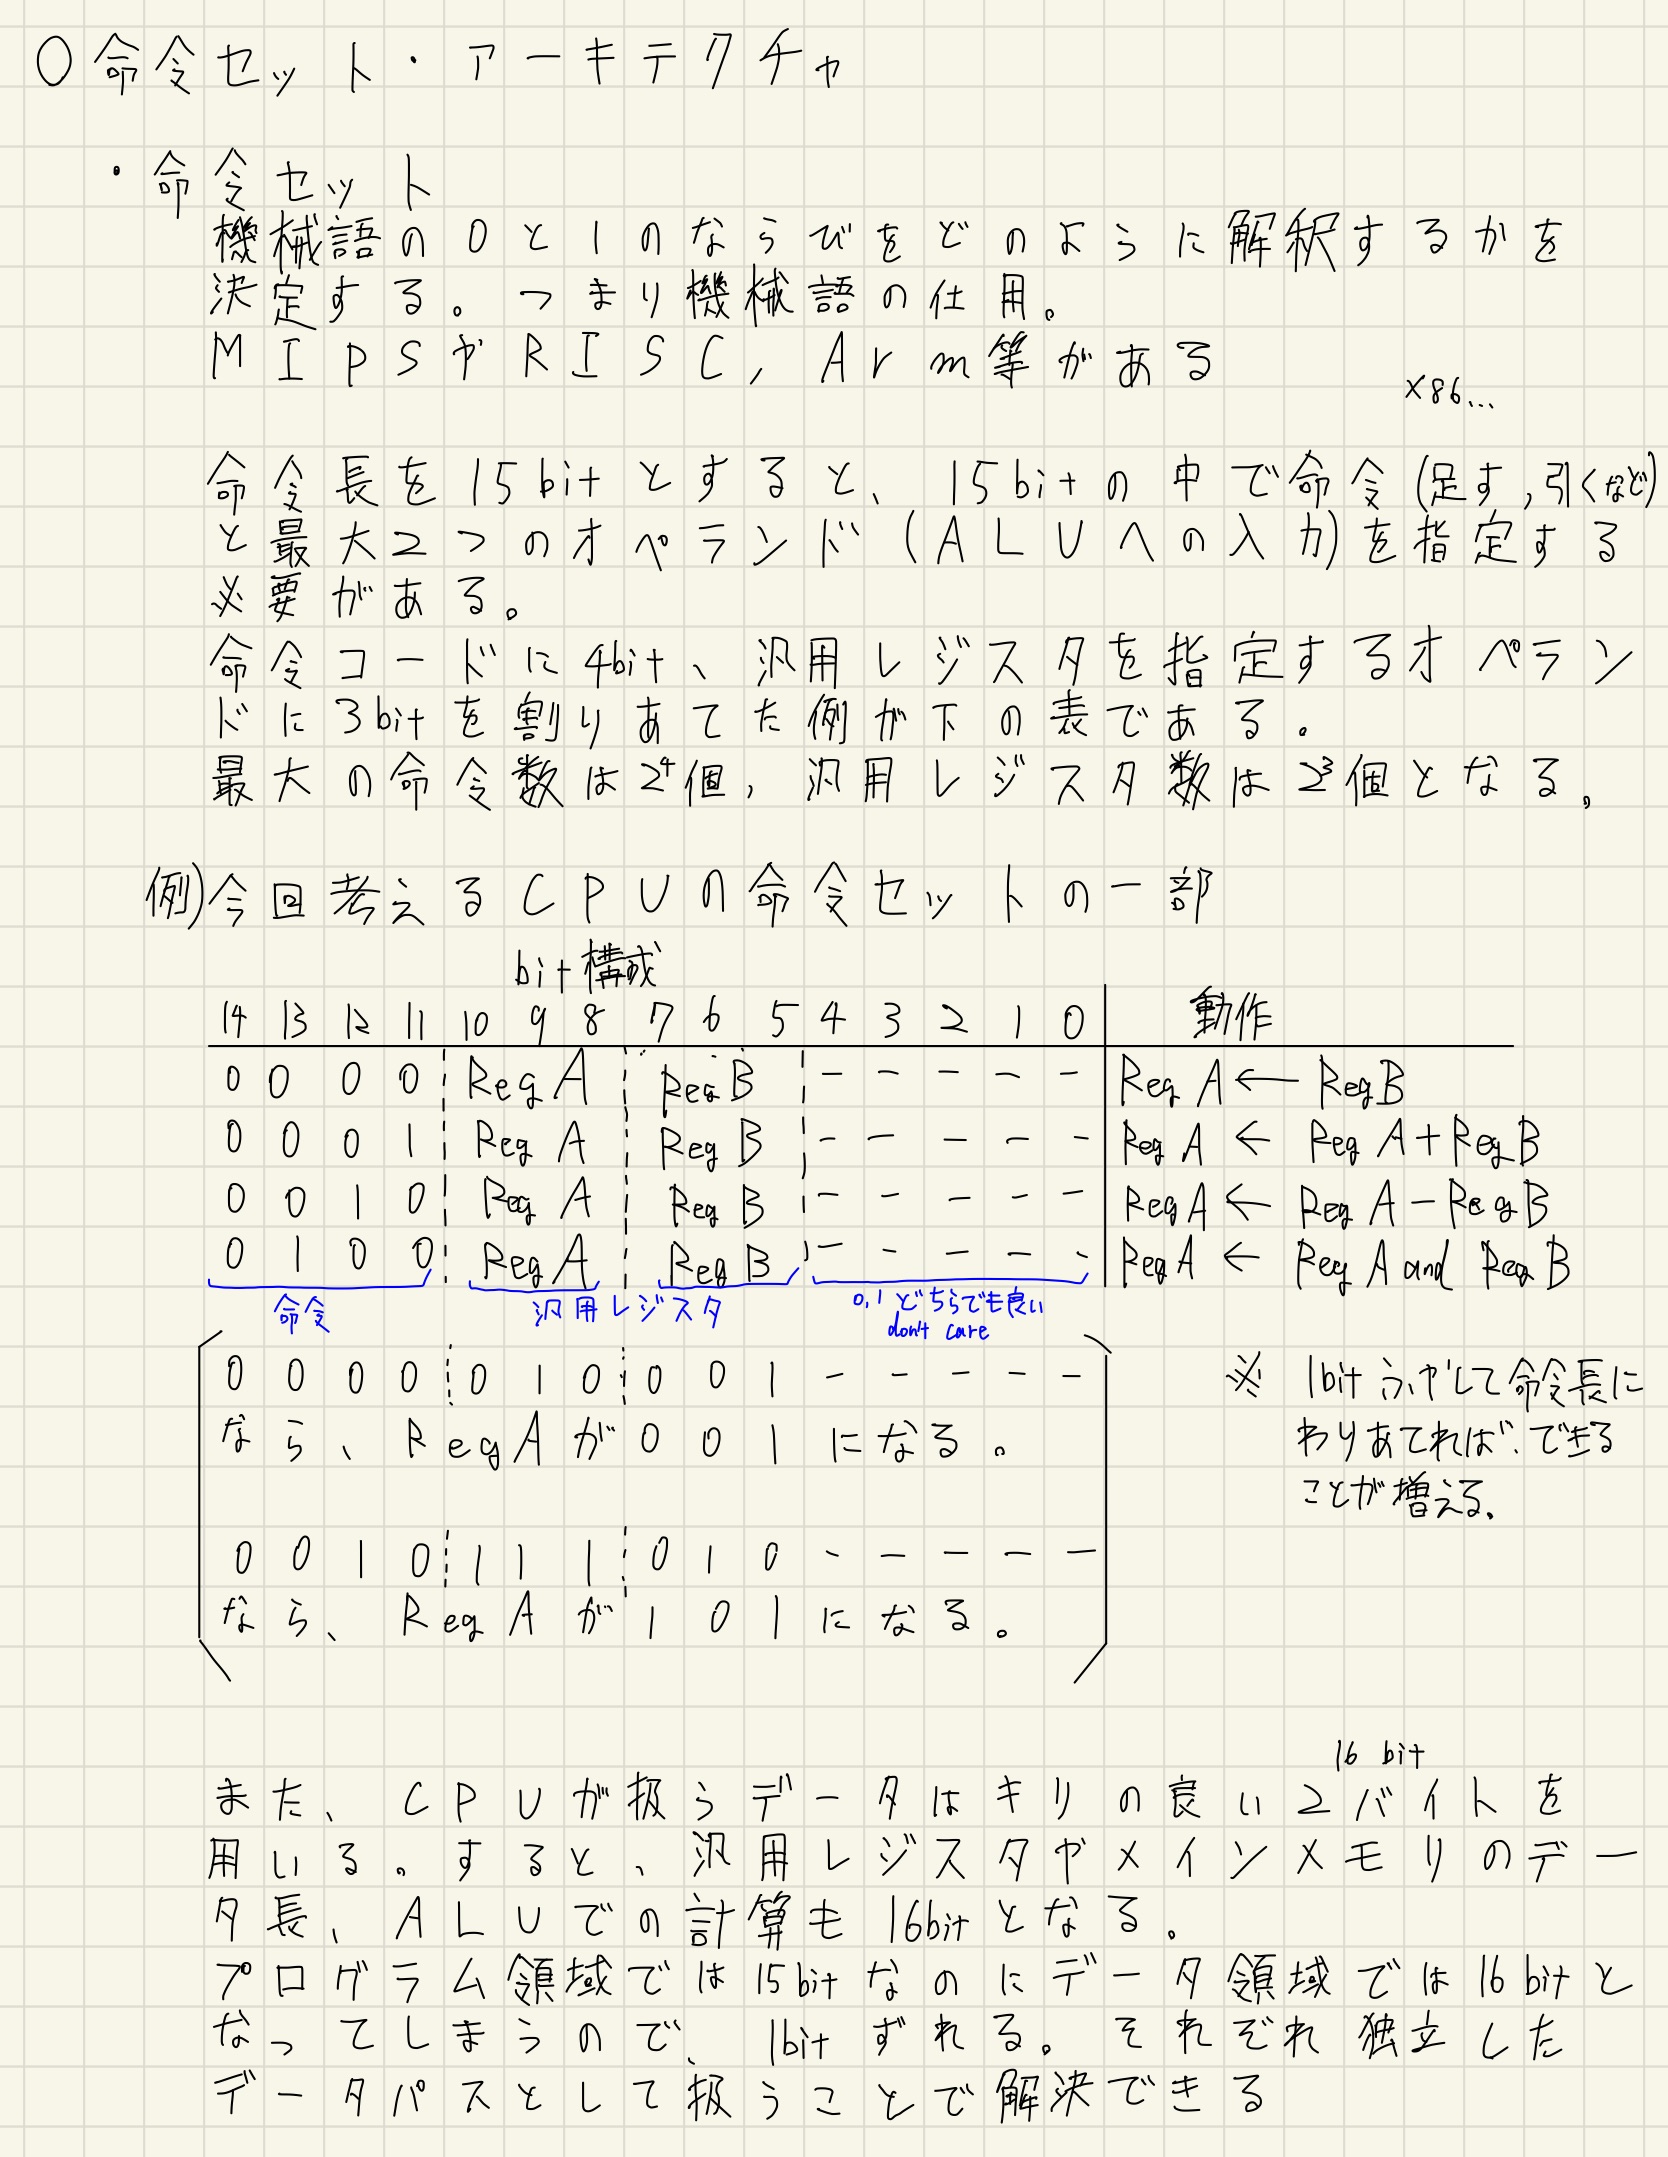 ○命令セット・アーキテクチャ
・命令セット
機械語の0と1のならびをどのように解釈するかを
決定する。つまり機械語の仕用。
MIPSやRISC, Arm等がある
x86...
命令長を15bitとすると、15bitの中で命令(足す,引くなど)
と最大2つのオペランド(ALUへの入力)を指定する
必要がある。
命令コードに4bit、汎用レジスタを指定するオペラン
ドに3bitを割りあてた例が下の表である。
最大の命令数は2⁴個, 汎用レジスタ数は2³個となる。
例)今回考えるCPUの命令セットの一部
bit構成
14 13 12 11 10 9 8 7 6 5 4 3 2 1 0 動作
0 0 0 0 Reg A Reg B - - - - - Reg A ← Reg B
0 0 0 1 Reg A Reg B - - - - - Reg A ← Reg A + Reg B
0 0 1 0 Reg A Reg B - - - - - Reg A ← Reg A - Reg B
0 1 0 0 Reg A Reg B - - - - - Reg A ← Reg A and Reg B
命令 汎用レジスタ 0,1どちらでも良い
don't care
0 0 0 0 0 1 0 0 0 1 - - - - -
なら、Reg Aが001になる。
0 0 1 0 1 1 1 0 1 0 - - - - -
なら、Reg Aが101になる。
※ 1bitふやして命令長に
わりあてれば、できる
ことが増える。
16 bit
また、CPUが扱うデータはキリの良い2バイトを
用いる。すると、汎用レジスタやメインメモリのデー
タ長、ALUでの計算も16bitとなる。
プログラム領域では15bitなのにデータ領域では16bitと
なってしまうので、1bitずれる。それぞれ独立した
データパスとして扱うことで解決できる